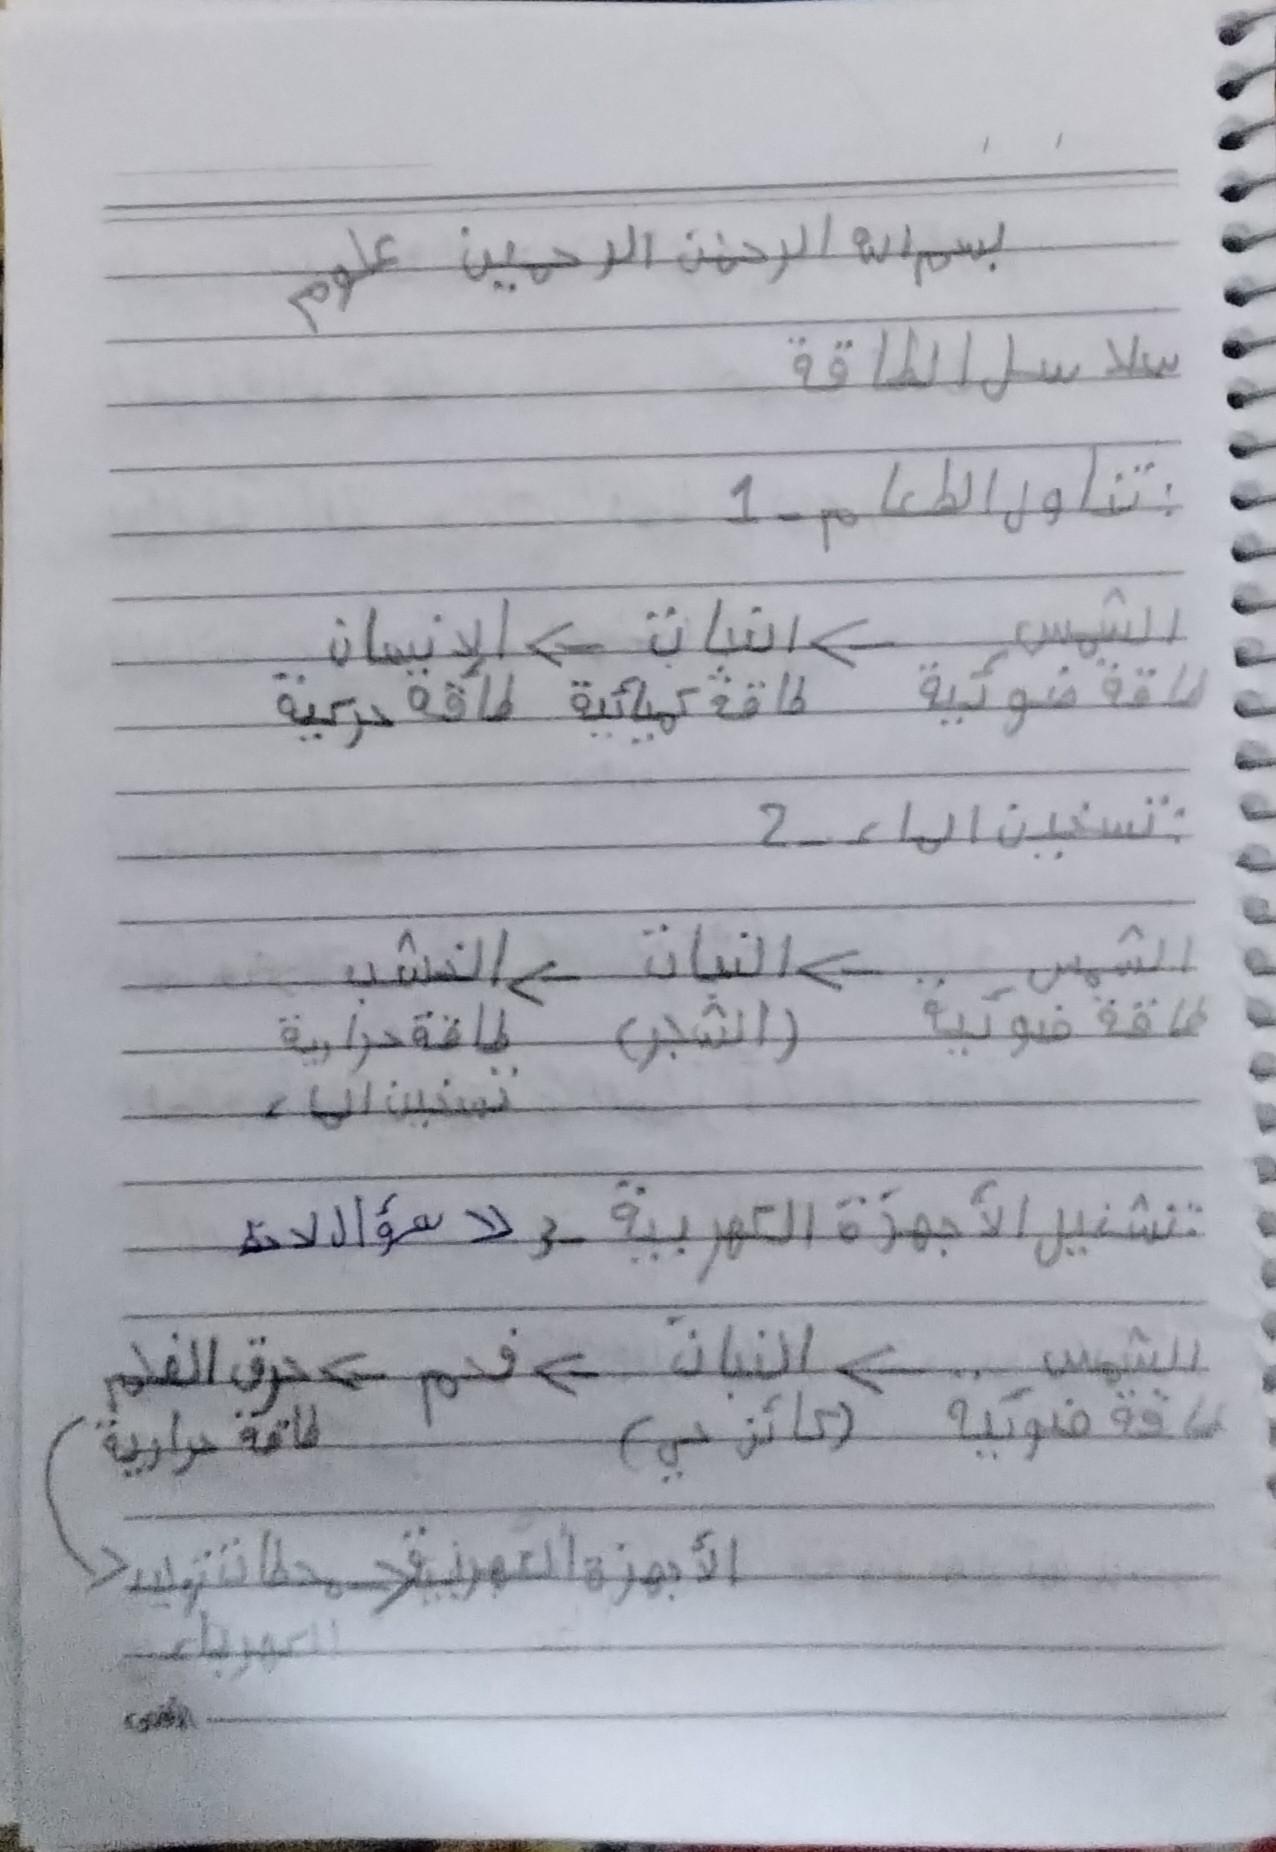 بسم الله الرحمن الرحمين علوم
سلاسل الطاقة
: تناول الطعام - 1
الشمس -> النبات -> الإنسان
طاقة ضوئية طاقة كميائية طاقة حركية
: تسخين الماء - 2
الشمس -> النبات -> الخشب
طاقة ضوئية (الشجر) طاقة حرارية
تسخين الماء
: تشغيل الأجهزة الكهربية - 3 >> سؤال
الشمس -> النبات -> فحم -> حرق الفحم
طاقة ضوئية (كائن حي) طاقة حرارية
الأجهزة الكهربية <- محطات توليد
الكهرباء